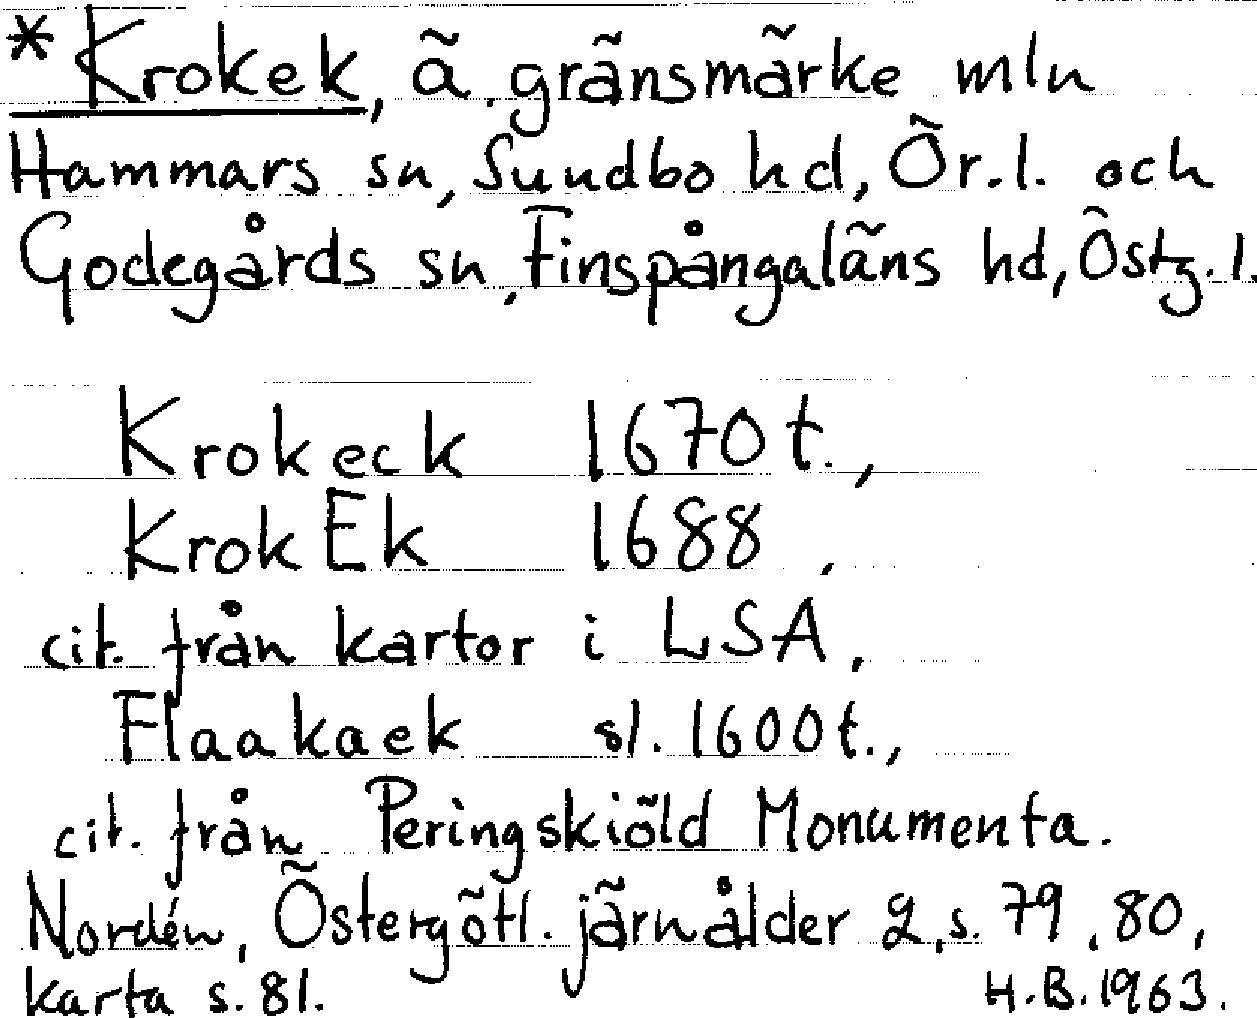 *Krokek, ä. gränsmärke mln
Hammars sn, Sundbo hd, Ör.l. och
Godegårds sn, Finspångaläns hd, Östg.l.
Krokeck 1670t.,
KrokEk 1688,
cit. från kartor i LSA,
Flaakaek sl. 1600t.,
cit. från Peringskiöld Monumenta.
Nordén, Östergötl. järnålder 2, s. 79, 80,
karta s. 81. H.B. 1963.